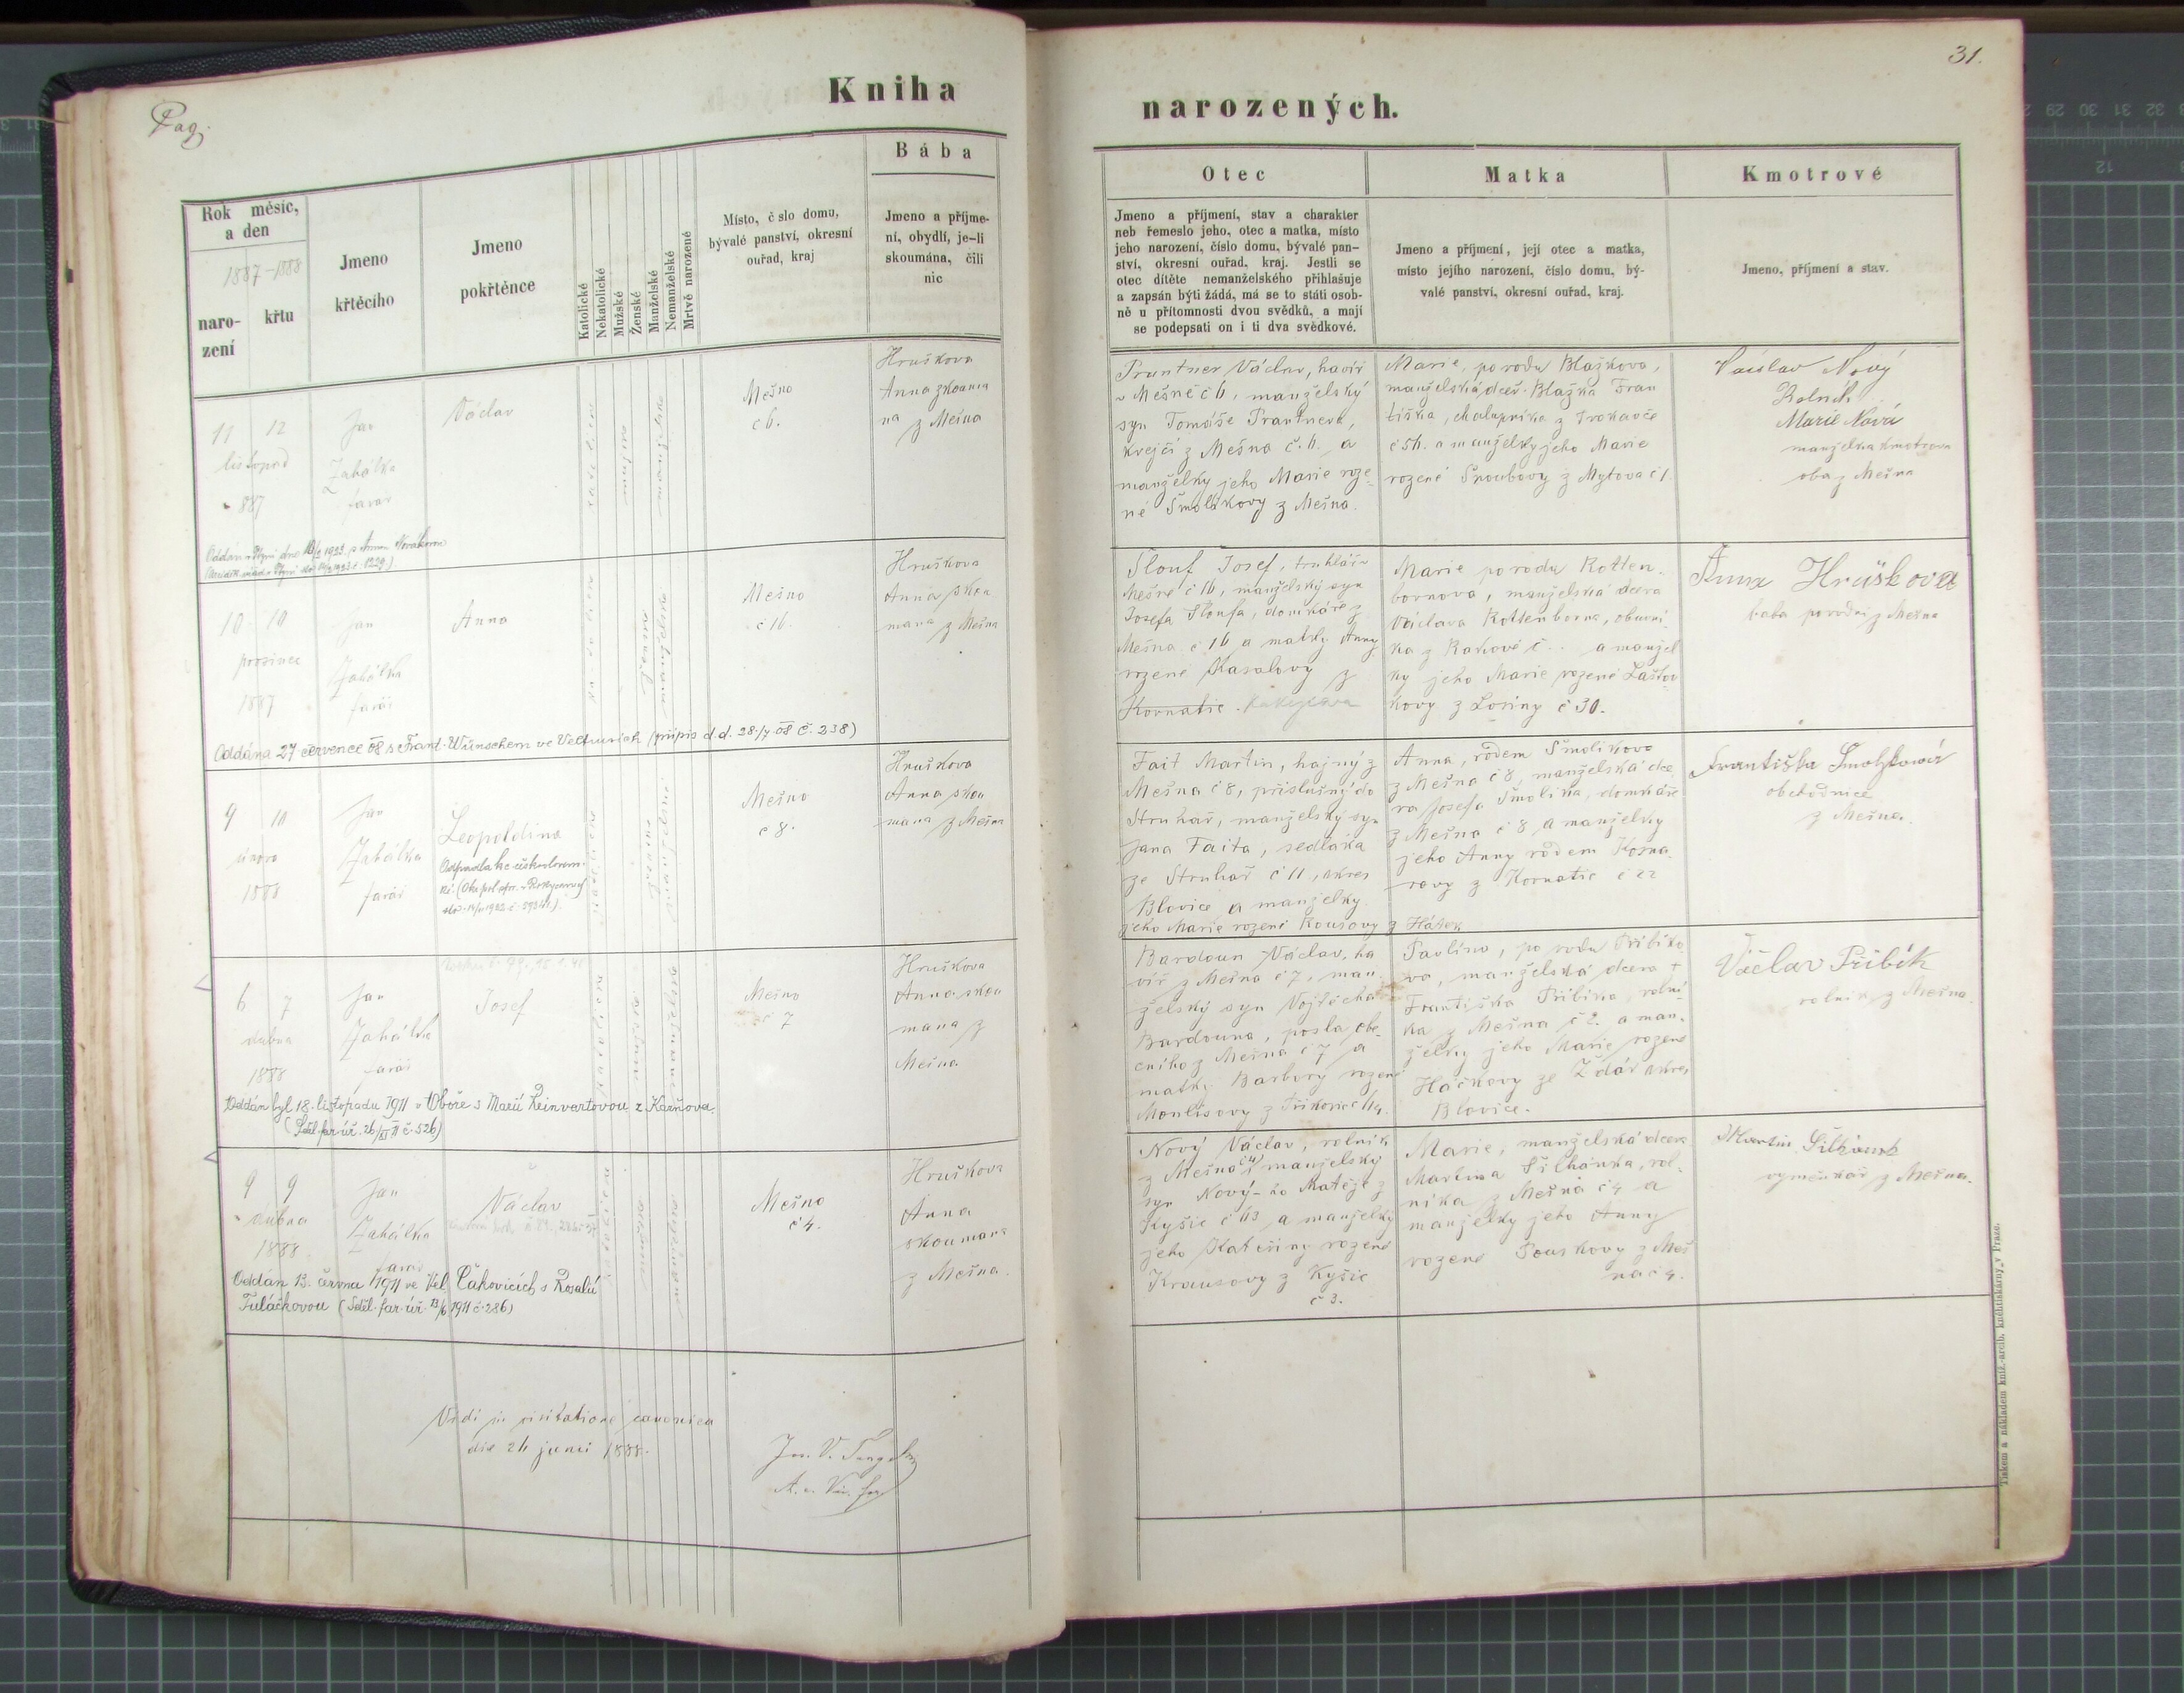 Pag.
Kniha
Rok měsíc,
a den
1887-1888
naro-
zení
křtu
Jmeno
křtěcího
Jmeno
pokřtěnce
Katolické
Nekatolické
Mužské
Ženské
Manželské
Nemanželské
Mrtvě narozené
Místo, č slo domu,
bývalé panství, okresní
ouřad, kraj
Bába
Jmeno a příjme-
ní, obydlí, je-li
skoumána, čili
nic
11 12
listopad
887
Jan
Zahálka
farář
Václav
Mešno
č 6.
Hruškova
Anna zkouma
na z Mešna
10 10
prosinec
1887
Jan
Zahálka
farář
Anna
Mešno
č 16.
Hruškova
Anna skou
mana z Mešna
Oddána 27 července 08 s Frant. Wünschem ve Veltrusích (přípis d.d. 28./7. 08 č. 238)
9 10
února
1888
Jan
Zahálka
farář
Leopoldina
Mešno
č 8.
Hruškova
Anna skou
mana z Mešna
6 7
dubna
1888
Jan
Zahálka
farář
Josef
Mešno
č 7
Hruškova
Anna skou
mana z
Mešna
Oddán byl 18. listopadu 1911 v Oboře s Marií Reinvartovou z Karňova.
(Sděl. far. úř. 26/XI 11 č. 526)
9 9
dubna
1888
Jan
Zahálka
farář
Václav
Mešno
č 4.
Hruškova
Anna
skoumana
z Mešna.
Oddán 13. června 1911 ve Vel. Čakovicích s Rosalií
Tuláčkovou (Sděl. far. úř. 13/6 1911 č. 286)
Vidi in visitatione canonica
die 26 junii 1888.
31.
narozených.
Otec
Jmeno a příjmení, stav a charakter
neb řemeslo jeho, otec a matka, místo
jeho narození, číslo domu, bývalé pan-
ství, okresní ouřad, kraj. Jestli se
otec dítěte nemanželského přihlašuje
a zapsán býti žádá, má se to státi osob-
ně u přítomnosti dvou svědků, a mají
se podepsati on i ti dva svědkové.
Matka
Jmeno a příjmení, její otec a matka,
místo jejího narození, číslo domu, bý-
valé panství, okresní ouřad, kraj.
Kmotrové
Jmeno, příjmení a stav.
Prantner Václav, havíř
v Mešně č 6, manželský
syn Tomáše Prantnera,
krejčí z Mešna č. 6. a
manželky jeho Marie roze-
né Smolíkovy z Mešna.
Marie, po rodu Blažkova,
manželská dceř. Blažka Fran
tiška, chalupníka z Trokavče
č 56. a manželky jeho Marie
rozené Sroubovy z Mytova č 1.
Václav Nový
Rolník
Marie Nová
manželka kmotrova
oba z Mešna
Slouf Josef, truhlář v
Mešně č 16, manželský syn
Josefa Sloufa, domkáře z
Mešna č 16 a matky Anny
rozené Kasalovy z
Kornatic.
Marie po rodu Rotten-
bornova, manželská dcera
Václava Rottenborna, obuvní-
ka z Rakové č.. a manžel
ky jeho Marie rozené Laštov
kovy z Losiny č 30.
Anna Hrůškova
baba porodní z Mešna
Fait Martin, hajný z
Mešna č 8, příslušný do
Struhař, manželský syn
Jana Faita, sedláka
ze Struhař č 11, okres
Blovice a manželky
jeho Marie rozené Kousovy z Hátek
Anna, rodem Smolíkova
z Mešna č 8, manželská dce
ra Josefa Smolíka, domkáře
z Mešna č 8 a manželky
jeho Anny rodem Kosna-
rovy z Kornatic č 22
Františka Smolíková
obchodnice
z Mešna.
Bardoun Václav, ha
víř z Mešna č 7, man-
želský syn Vojtěcha
Bardouna, posla obe-
cního z Mešna č 7 a
matky Barbory rozené
Moulisovy z
Pavlína, po rodu Přibíko
va, manželská dcera †
Františka Přibíka, rolní-
ka z Mešna č 2. a man-
želky jeho Marie rozené
Háčkovy ze Ždár okres
Blovice.
Václav Přibík
rolník z Mešna.
Nový Václav, rolník
z Mešna č 4 manželský
syn Nový-ho Matěje z
Kyšic č 43 a manželky
jeho Kateřiny rozené
Krausovy z Kyšic
č 3.
Marie, manželská dcera
Martina Šilhánka, rol-
níka z Mešna č 4 a
manželky jeho Anny
rozené Pouskovy z Meš
na č 4.
Martin Šilhánek
výměnkář z Mešna.
Tiskem a nákladem kníž.-arcib. knihtiskárny v Praze.